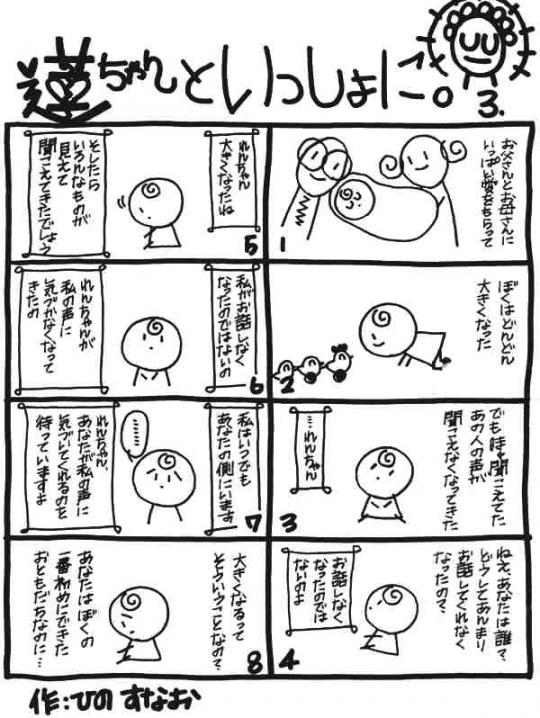 蓮ちゃんといっしょに。
3.
お父さんとお母さんに
いっぱい愛をもらって
1
ぼくはどんどん
大きくなった
2
でも時々聞こえてた
あの人の声が
聞こえなくなってきた
…れんちゃん
3
ねえ、あなたは誰？
どうしてあんまり
お話してくれなく
なったの？
お話しなく
なったのでは
ないのよ
4
れんちゃん
大きくなったね
そしたら
いろんなものが
見えて
聞こえてきたでしょう
5
私がお話しなく
なったのではないの
れんちゃんが
私の声に
気づかなくなって
きたの
6
私はいつでも
あなたの側にいます
………
れんちゃん、
あなたが私の声に
気づいてくれるのを
待っていますよ
7
大きくなるって
そういうことなの？
あなたはぼくの
一番初めにできた
おともだちなのに…
8
作：ひの すなお